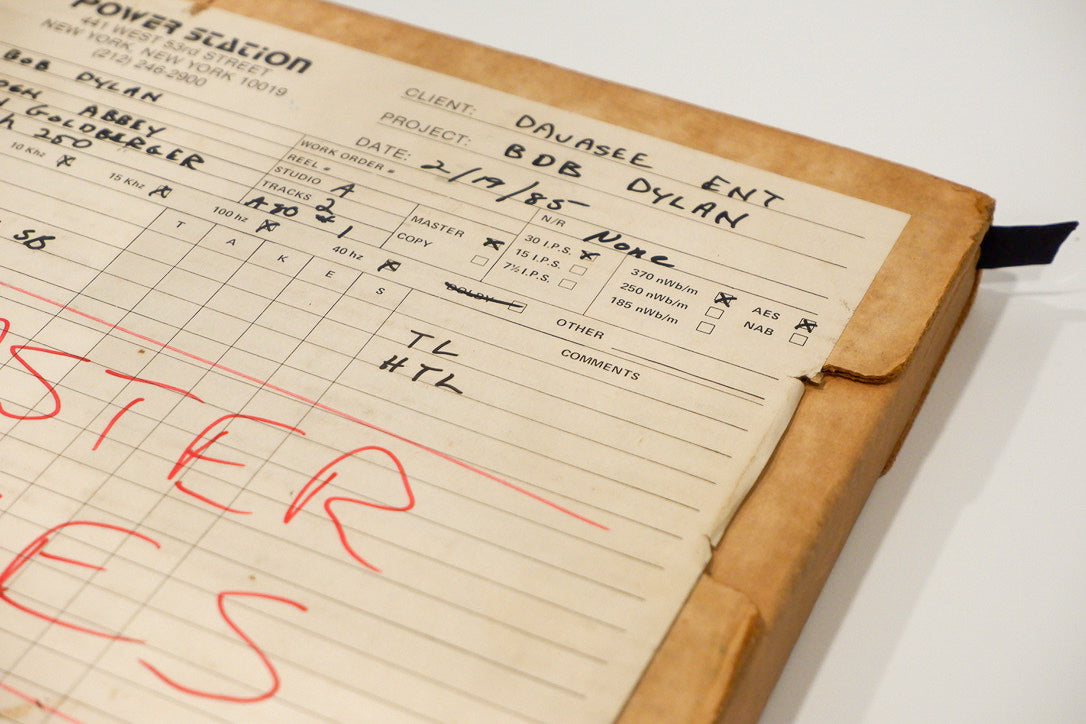 POWER STATION
441 WEST 53rd STREET
NEW YORK, NEW YORK 10019
(212) 246-2900
BOB DYLAN
ABBEY
GOLDBERGER
250
10 Khz X
15 Khz X
100 hz X
40 hz X
SB
CLIENT: DAVASEE ENT
PROJECT: BOB DYLAN
DATE: 2/19/85
WORK ORDER
REEL
STUDIO A
TRACKS 2
A80 #1
MASTER X
COPY
N/R None
30 I.P.S. X
15 I.P.S.
7½ I.P.S.
370 nWb/m X
250 nWb/m
185 nWb/m
AES X
NAB
DOLBY
OTHER
COMMENTS
TAKES
TL
HTL
STER
ES